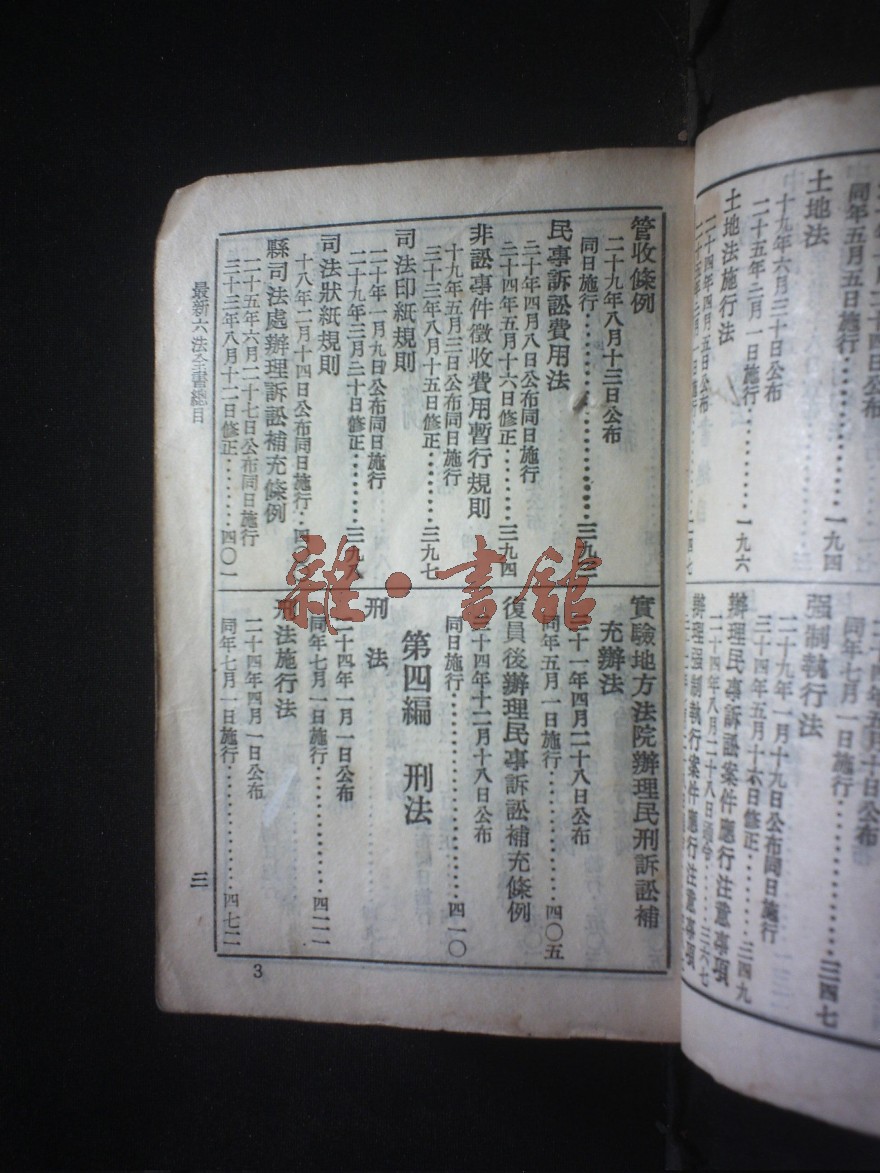 土地法
十九年六月三十日公布
二十五年三月一日施行
一九四
土地法施行法
二十四年四月五日公布
一九六
强制執行法
二十九年一月十九日公布同日施行
三十四年五月十六日修正
三四七
辦理民事訴訟案件應行注意事項
三四九
辦理强制執行案件應行注意事項
三六七
管收條例
二十九年八月十三日公布
同日施行
民事訴訟費用法
三十年四月八日公布同日施行
三十四年五月十六日修正
三九四
非訟事件徵收費用暫行規則
十九年五月三日公布同日施行
三十三年八月十五日修正
三九七
司法印紙規則
二十年一月九日公布同日施行
二十九年三月二十日修正
三九八
司法狀紙規則
十八年二月十四日公布同日施行
縣司法處辦理訴訟補充條例
二十五年六月二十七日公布同日施行
三十三年八月十二日修正
四〇一
實驗地方法院辦理民刑訴訟補
充辦法
三十一年四月二十八日公布
同年五月一日施行
四〇五
復員後辦理民事訴訟補充條例
三十四年十二月十八日公布
同日施行
四一〇
第四編 刑法
刑法
二十四年一月一日公布
同年七月一日施行
四一一
刑法施行法
二十四年四月一日公布
同年七月一日施行
四七二
最新六法全書總目
三
3
雜·書館